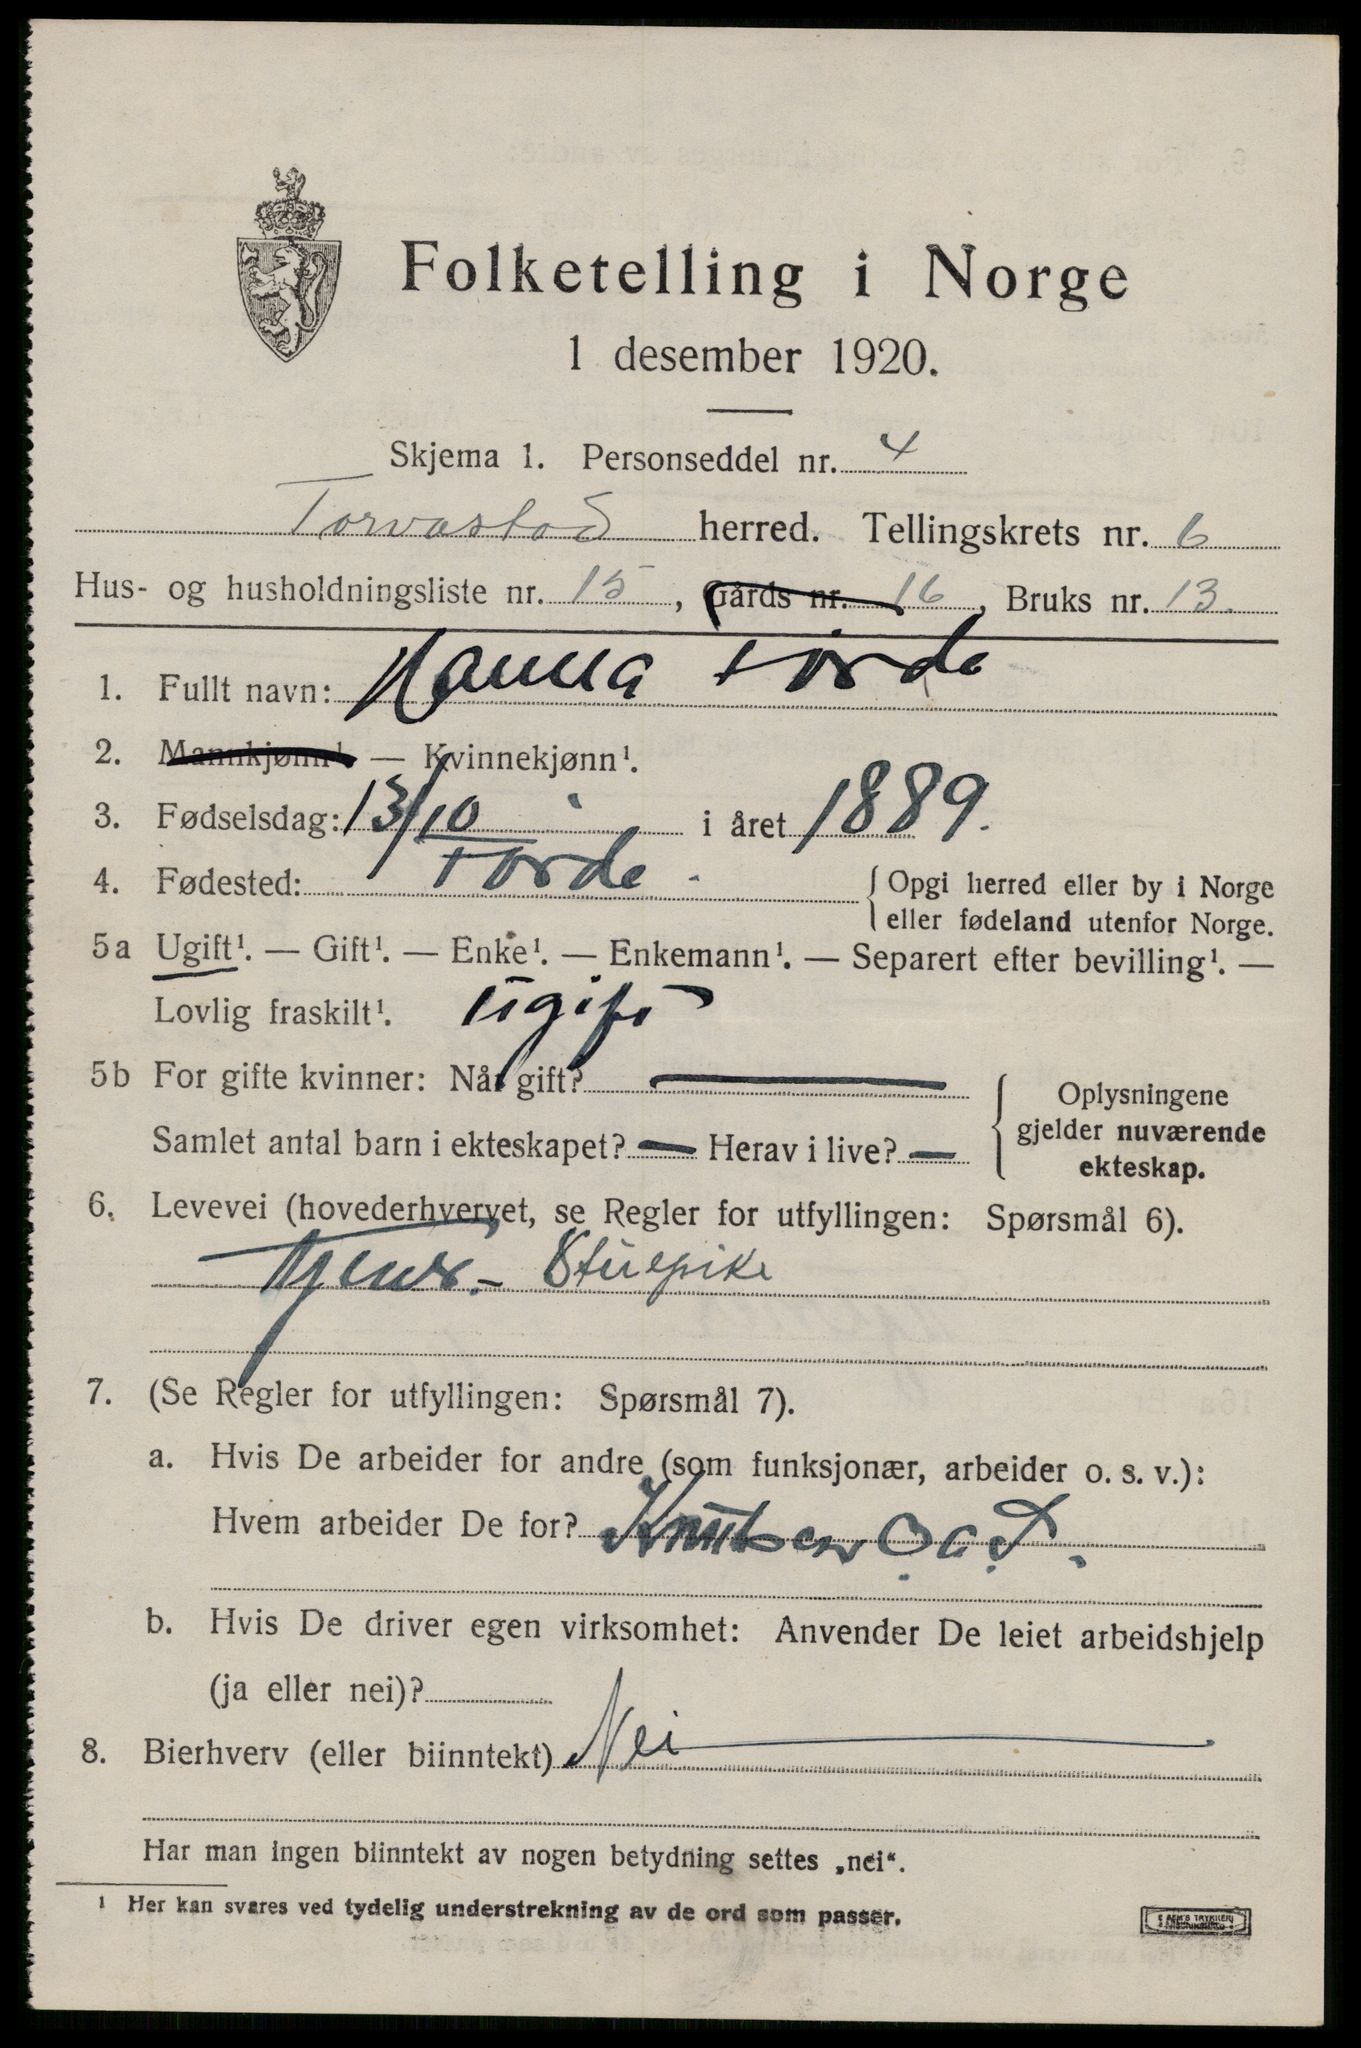 Folketelling i Norge
1 desember 1920.
Skjema 1. Personseddel nr. 4
Torvastad herred. Tellingskrets nr. 6
Hus- og husholdningsliste nr. 15, Gårds nr. 16, Bruks nr. 13.
1. Fullt navn: Hanna Førde
2. Mannkjønn¹. — Kvinnekjønn¹.
3. Fødselsdag: 13/10 i året 1889.
4. Fødested: Førde. { Opgi herred eller by i Norge
eller fødeland utenfor Norge.
5a Ugift¹. — Gift¹. — Enke¹. — Enkemann¹. — Separert efter bevilling¹. —
Lovlig fraskilt¹. Ugift
5b For gifte kvinner: Når gift? — { Oplysningene
gjelder nuværende
Samlet antal barn i ekteskapet? — Herav i live? —
ekteskap.
6. Levevei (hovederhvervet, se Regler for utfyllingen: Spørsmål 6).
Tjener. - Stuepike
7. (Se Regler for utfyllingen: Spørsmål 7).
a. Hvis De arbeider for andre (som funksjonær, arbeider o. s. v.):
Hvem arbeider De for? Knutsen O. a. S.
b. Hvis De driver egen virksomhet: Anvender De leiet arbeidshjelp
(ja eller nei)?
8. Bierhverv (eller biinntekt) Nei
Har man ingen biinntekt av nogen betydning settes „nei“.
¹ Her kan svares ved tydelig understrekning av de ord som passer.